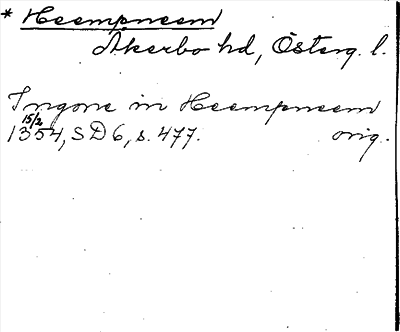 * Heempneem
Åkerbo hd, Österg. l.
Ingone in Heempneem
15/2
1354, SD 6, s. 477. orig.